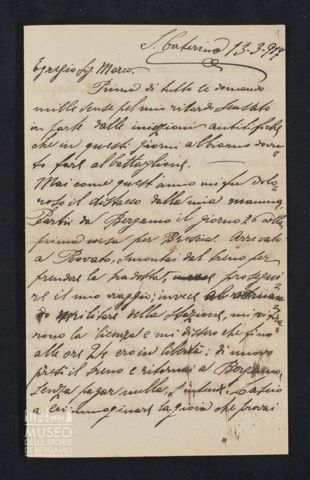 1
S. Caterina 13-3-917
Egregio Sig. Marco.
Prima di tutto le domando
mille scuse pel mio ritardo scusato
in parte dalle iniezioni antitifiche
che in questi giorni abbiamo dovu-
to fare al battaglione.
Mai come quest'anno mi fu dolo-
roso il distacco dalla mia mamma.
Partii da Bergamo il giorno 26 colla
prima corsa per Brescia. Arrivato
a Rovato, smontai dal treno per
prendere la tradotta, e prosegui-
re il mio viaggio; invece al coman-
do militare della stazione, mi ritira-
rono la licenza e mi dissero che fino
alle ore 24 ero in libertà: di nuovo
presi il treno e ritornai a Bergamo
senza pagar nulla, s'intende. Lascio
a lei immaginare la gioia che provai
MUSEO
DELLE STORIE
DI BERGAMO